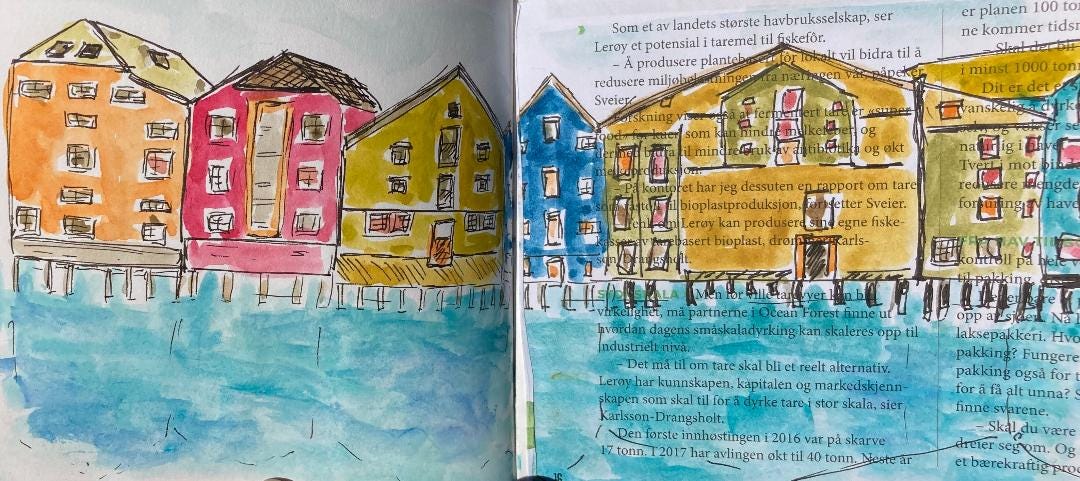 Som et av landets største havbruksselskap, ser
Lerøy et potensial i taremel til fiskefôr.
– Å produsere plantebasert fôr lokalt vil bidra til å
redusere miljøbelastningen fra næringen vår, påpeker
Sveier.
Forskning viser også at fermentert tare er «super-
food» for kuer som kan hindre melkefeber, og
dermed bidra til mindre bruk av antibiotika og økt
melkeproduksjon.
– På kontoret har jeg dessuten en rapport om tare
til bioplastproduksjon, fortsetter Sveier.
Lerøy kan produsere sine egne fiske-
kasser av tarebasert bioplast, drømmer Karls-
son-Drangsholt.
SKALA Men før ville tarevyer kan bli
virkelighet, må partnerne i Ocean Forest finne ut
hvordan dagens småskaladyrking kan skaleres opp til
industrielt nivå.
– Det må til om tare skal bli et reelt alternativ.
Lerøy har kunnskapen, kapitalen og markedskjenn-
skapen som skal til for å dyrke tare i stor skala, sier
Karlsson-Drangsholt.
Den første innhøstingen i 2016 var på skarve
17 tonn. I 2017 har avlingen økt til 40 tonn. Neste år
16
er planen 100 to
ne kommer tidsn
– Skal det bli
i minst 1000 tonn
Dit er det et s
vanskelig å dyrke
naturlig i havet
Tvert i mot
forsuring av have
kontroll på hele
til pakking.
opp av sjøen. Nå
laksepakkeri. Hvo
pakking? Fungere
pakking også for t
for å få alt unna? S
finne svarene.
– Skal du være
dreier seg om. Og
et bærekraftig pro